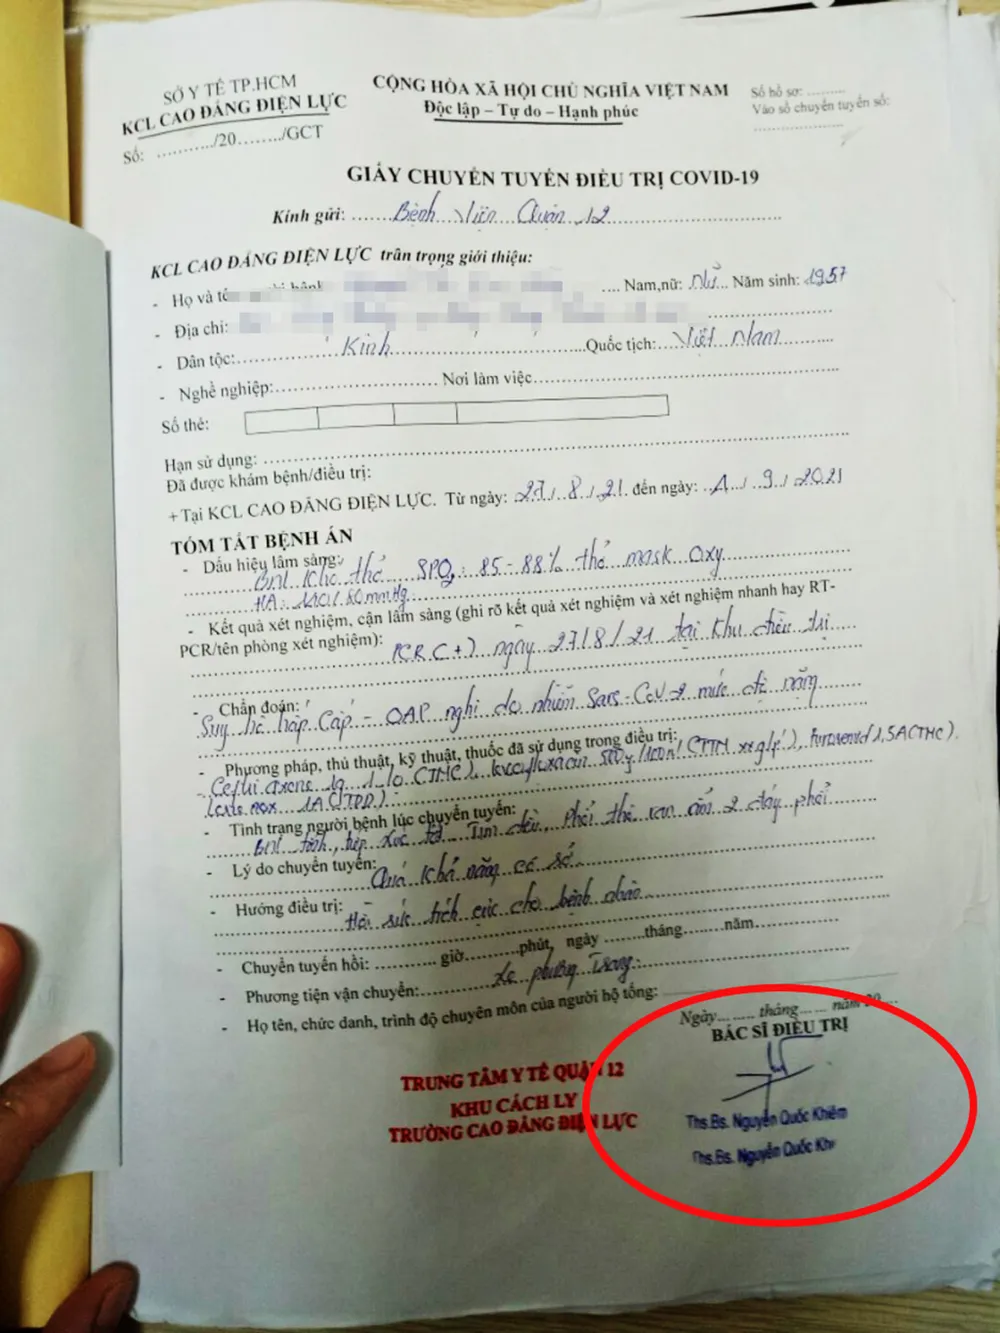 SỞ Y TẾ TP.HCM
KCL CAO ĐẲNG ĐIỆN LỰC
Số: ............/20......../GCT
CỘNG HÒA XÃ HỘI CHỦ NGHĨA VIỆT NAM
Độc lập – Tự do – Hạnh phúc
Số hồ sơ: .........
Vào sổ chuyển tuyến số:
.....................
GIẤY CHUYỂN TUYẾN ĐIỀU TRỊ COVID-19
Kính gửi: Bệnh Viện Quận 12
KCL CAO ĐẲNG ĐIỆN LỰC trân trọng giới thiệu:
- Họ và tê .... Nam,nữ: Nữ Năm sinh: 1957
- Địa chỉ:
- Dân tộc: Kinh Quốc tịch: Việt Nam
- Nghề nghiệp: Nơi làm việc
Số thẻ:
Hạn sử dụng:
Đã được khám bệnh/điều trị:
+ Tại KCL CAO ĐẲNG ĐIỆN LỰC. Từ ngày: 27/8/21 đến ngày: 1/9/2021
TÓM TẮT BỆNH ÁN
- Dấu hiệu lâm sàng:
BN khó thở, SPO2: 85-88% thở mask oxy
HA: /80mmHg
- Kết quả xét nghiệm, cận lâm sàng (ghi rõ kết quả xét nghiệm và xét nghiệm nhanh hay RT-
PCR/tên phòng xét nghiệm): PCR (+) ngày 27/8/21 tại khu điều trị
- Chẩn đoán:
Suy hô hấp cấp - nghi do nhiễm Sars-CoV-2 mức độ nặng
- Phương pháp, thủ thuật, kỹ thuật, thuốc đã sử dụng trong điều trị:
- Tình trạng người bệnh lúc chuyển tuyến:
BN tỉnh, tiếp xúc Tim đều, Phổi thô ran ẩm 2 đáy phổi
- Lý do chuyển tuyến: Quá khả năng cơ sở
- Hướng điều trị: Hồi sức tích cực cho bệnh nhân
- Chuyển tuyến hồi: ............ giờ.........phút, ngày ........tháng........năm............
- Phương tiện vận chuyển: Xe phương Trang
- Họ tên, chức danh, trình độ chuyên môn của người hộ tống:
Ngày....... tháng....... năm 20....
BÁC SĨ ĐIỀU TRỊ
TRUNG TÂM Y TẾ QUẬN 12
KHU CÁCH LY
TRƯỜNG CAO ĐẲNG ĐIỆN LỰC
Ths.Bs. Nguyễn Quốc Khiêm
Ths.Bs. Nguyễn Quốc Khi